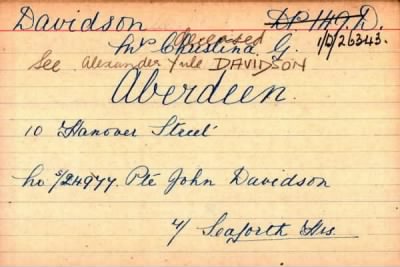 Davidson
Deceased 1/D/26343.
Mrs Christina G.
See Alexander Yule DAVIDSON
Aberdeen.
10 Hanover Street
No S/24977. Pte John Davidson
4/ Seaforth Hrs.